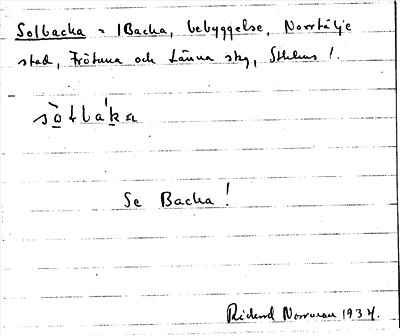 Solbacka = 1 Backa, bebyggelse, Norrtälje
stad, Frötuna och Länna skg, Sthlms l.
sòlbáka
Se Backa!
Rickard Norrman 1934.